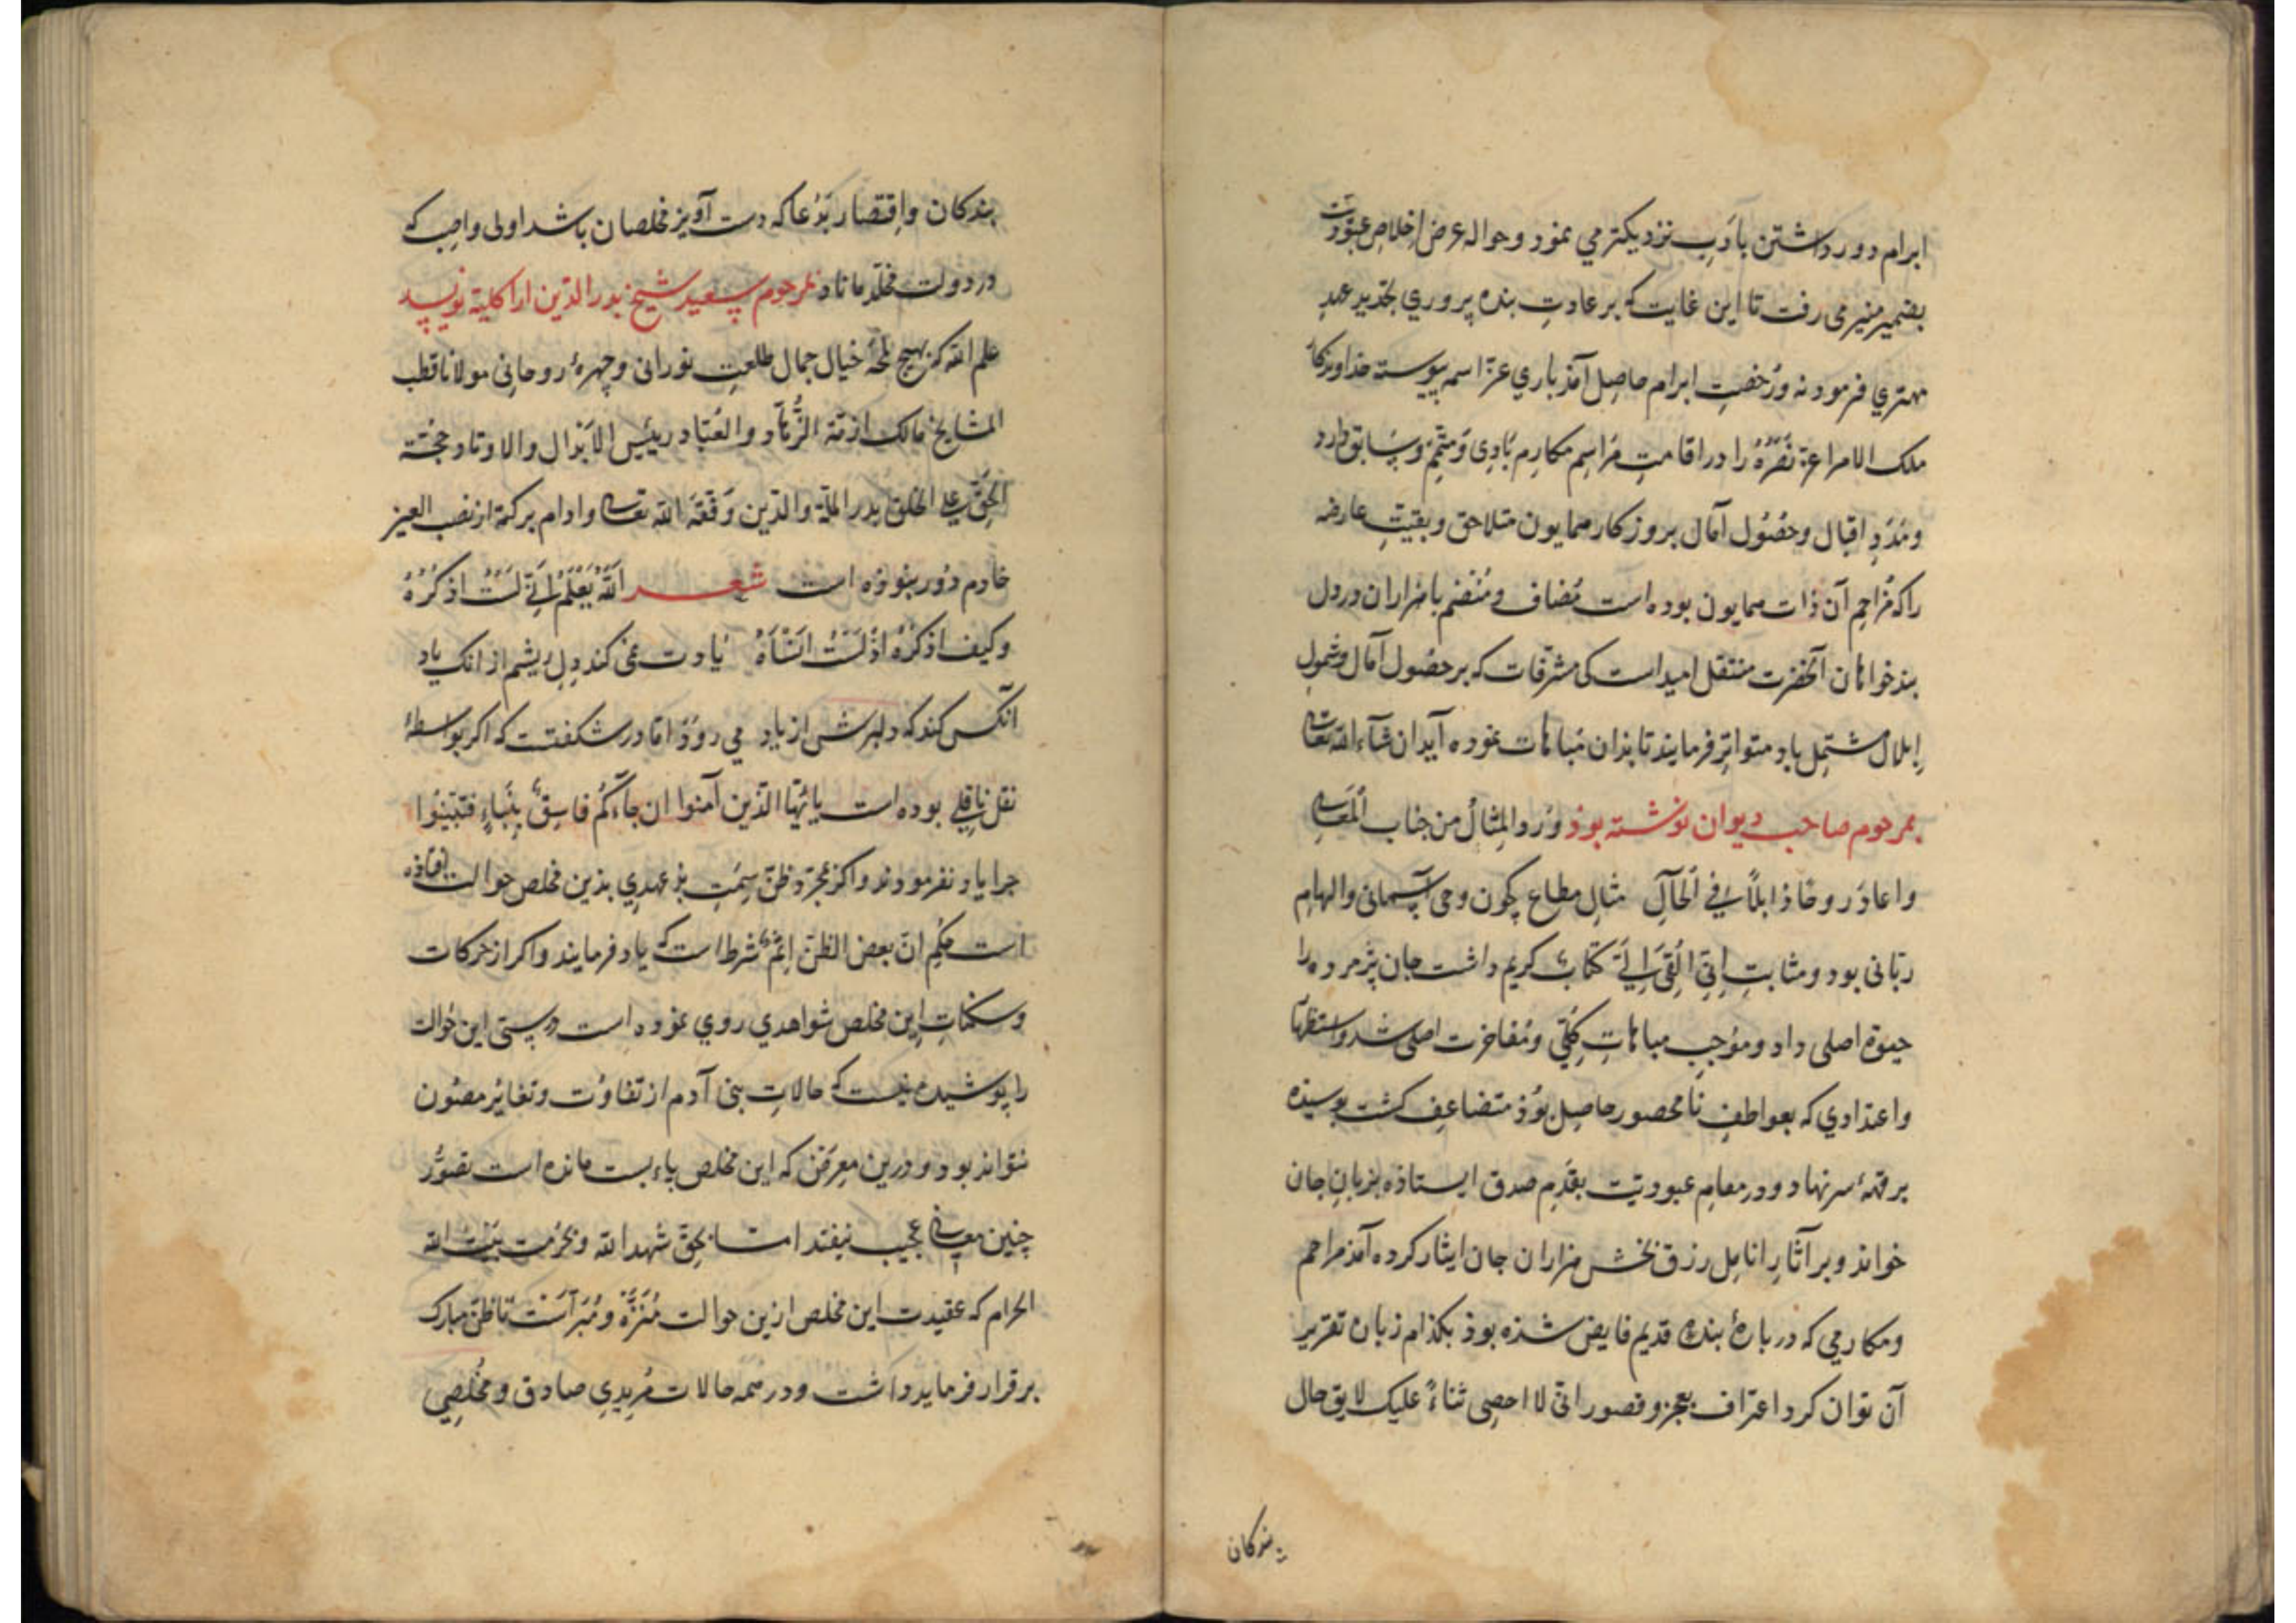 ابرام دور داشتن بادب نزدیکتر می نمود و حواله عرض اخلاص عبودیت
بضمیر منیر می رفت تا این غایت که بر عادت بنده پروری تجدید عهد
مهتری فرمودند و رخصت ابرام حاصل آمذ باری عز اسمه پیوسته خداوندکار
ملک الامرا عز نصره را در اقامت مراسم مکارم بادی و متمم و سابق دارد
و مدد اقبال و حصول آمال بروزکار همایون متلاحق و بقیت عارضه
را که مزاحم آن ذات همایون بوده است مضاف و منضم با هزاران درد دل
بدخواهان آنحضرت منتقل امیداست کی مشرفات که بر حصول آمال و شمول
ابلال مشتمل باد متواتر فرمایند تا بذان مباهات نموده آید ان شاء الله تعالی
بمرحوم صاحب دیوان نوشته بوذ ورد المثال من جناب المعالی
و اعاد روحا ذابلا فی الحال مثال مطاع چون وحی آسمانی و الهام
ربانی بود و مثابت انی القی الی کتاب کریم داشت جان پژمرده را
حیوة اصلی داد و موجب مباهات کلی و مفاخرت اصلی شد و استظهار
و اعتدادی که بعواطف نامحصور حاصل بوذ متضاعف کشت بوسیذه
بر قمۀ سر نهاد و در مقام عبودیت بقدم صدق ایستاذه بزبان جان
خواند و بر آثار انامل رزق بخش هزاران جان ایثار کرده آمذ مراحم
و مکارمی که دربارۀ بندۀ قدیم فایض شذه بوذ بکذام زبان تقریر
آن توان کرد اعتراف بعجز و قصور انی لا احصی ثناءً علیک لایق حال
بندکان
بندکان و اقتصار بدعا که دست آویز مخلصان باشد اولی و اجب که
در دولت مخلد ماناد بمرحوم سعید شیخ بدرالدین اراکلیة نویسد
علم الله کز هیچ لمحۀ خیال جمال طلعت نورانی و چهرۀ روحانی مولانا قطب
المشایخ مالک ازمة الزهاد و العباد رییس الابدال و الاوتاد حجة
الحق علی الخلق بدر الملة والدین وفقه الله تعالی و ادام برکته از نصب العین
خادم دور بنوذه است شعر الله یعلم انی لست اذکره
و کیف اذکره اذ لست انساه یادت نمی کند دل ریشم از انک یاد
آنکس کند که دلبرش از یاد می روذ اما در شکفتست که اکر بواسطۀ
نقل ناقلی بوده است یا ایها الذین آمنوا ان جاءکم فاسق بنباء فتبینوا
چرا یاد نفرمودند و اکر بمجرد ظن سمت بذعهدی بذین مخلص حوالت افتاذه
است حکم ان بعض الظن اثم شرطاست که یاد فرمایند و اکر از حرکات
و سکنات این مخلص شواهدی روی نموده است درستی این حوالت
را پوشیده نیست که حالات بنی آدم از تفاوت و تغایر مصون
نتواند بود و درین معرض که این مخلص پاءبست مانده است تصور
چنین معانی عجیب نیفتد اما بحق شهدالله و بحرمت بیت الله
الحرام که عقیدت این مخلص ازین حوالت منزه و مبراست تا ظن مبارک
برقرار فرماید داشت و در همه حالات مریدی صادق و مخلصی